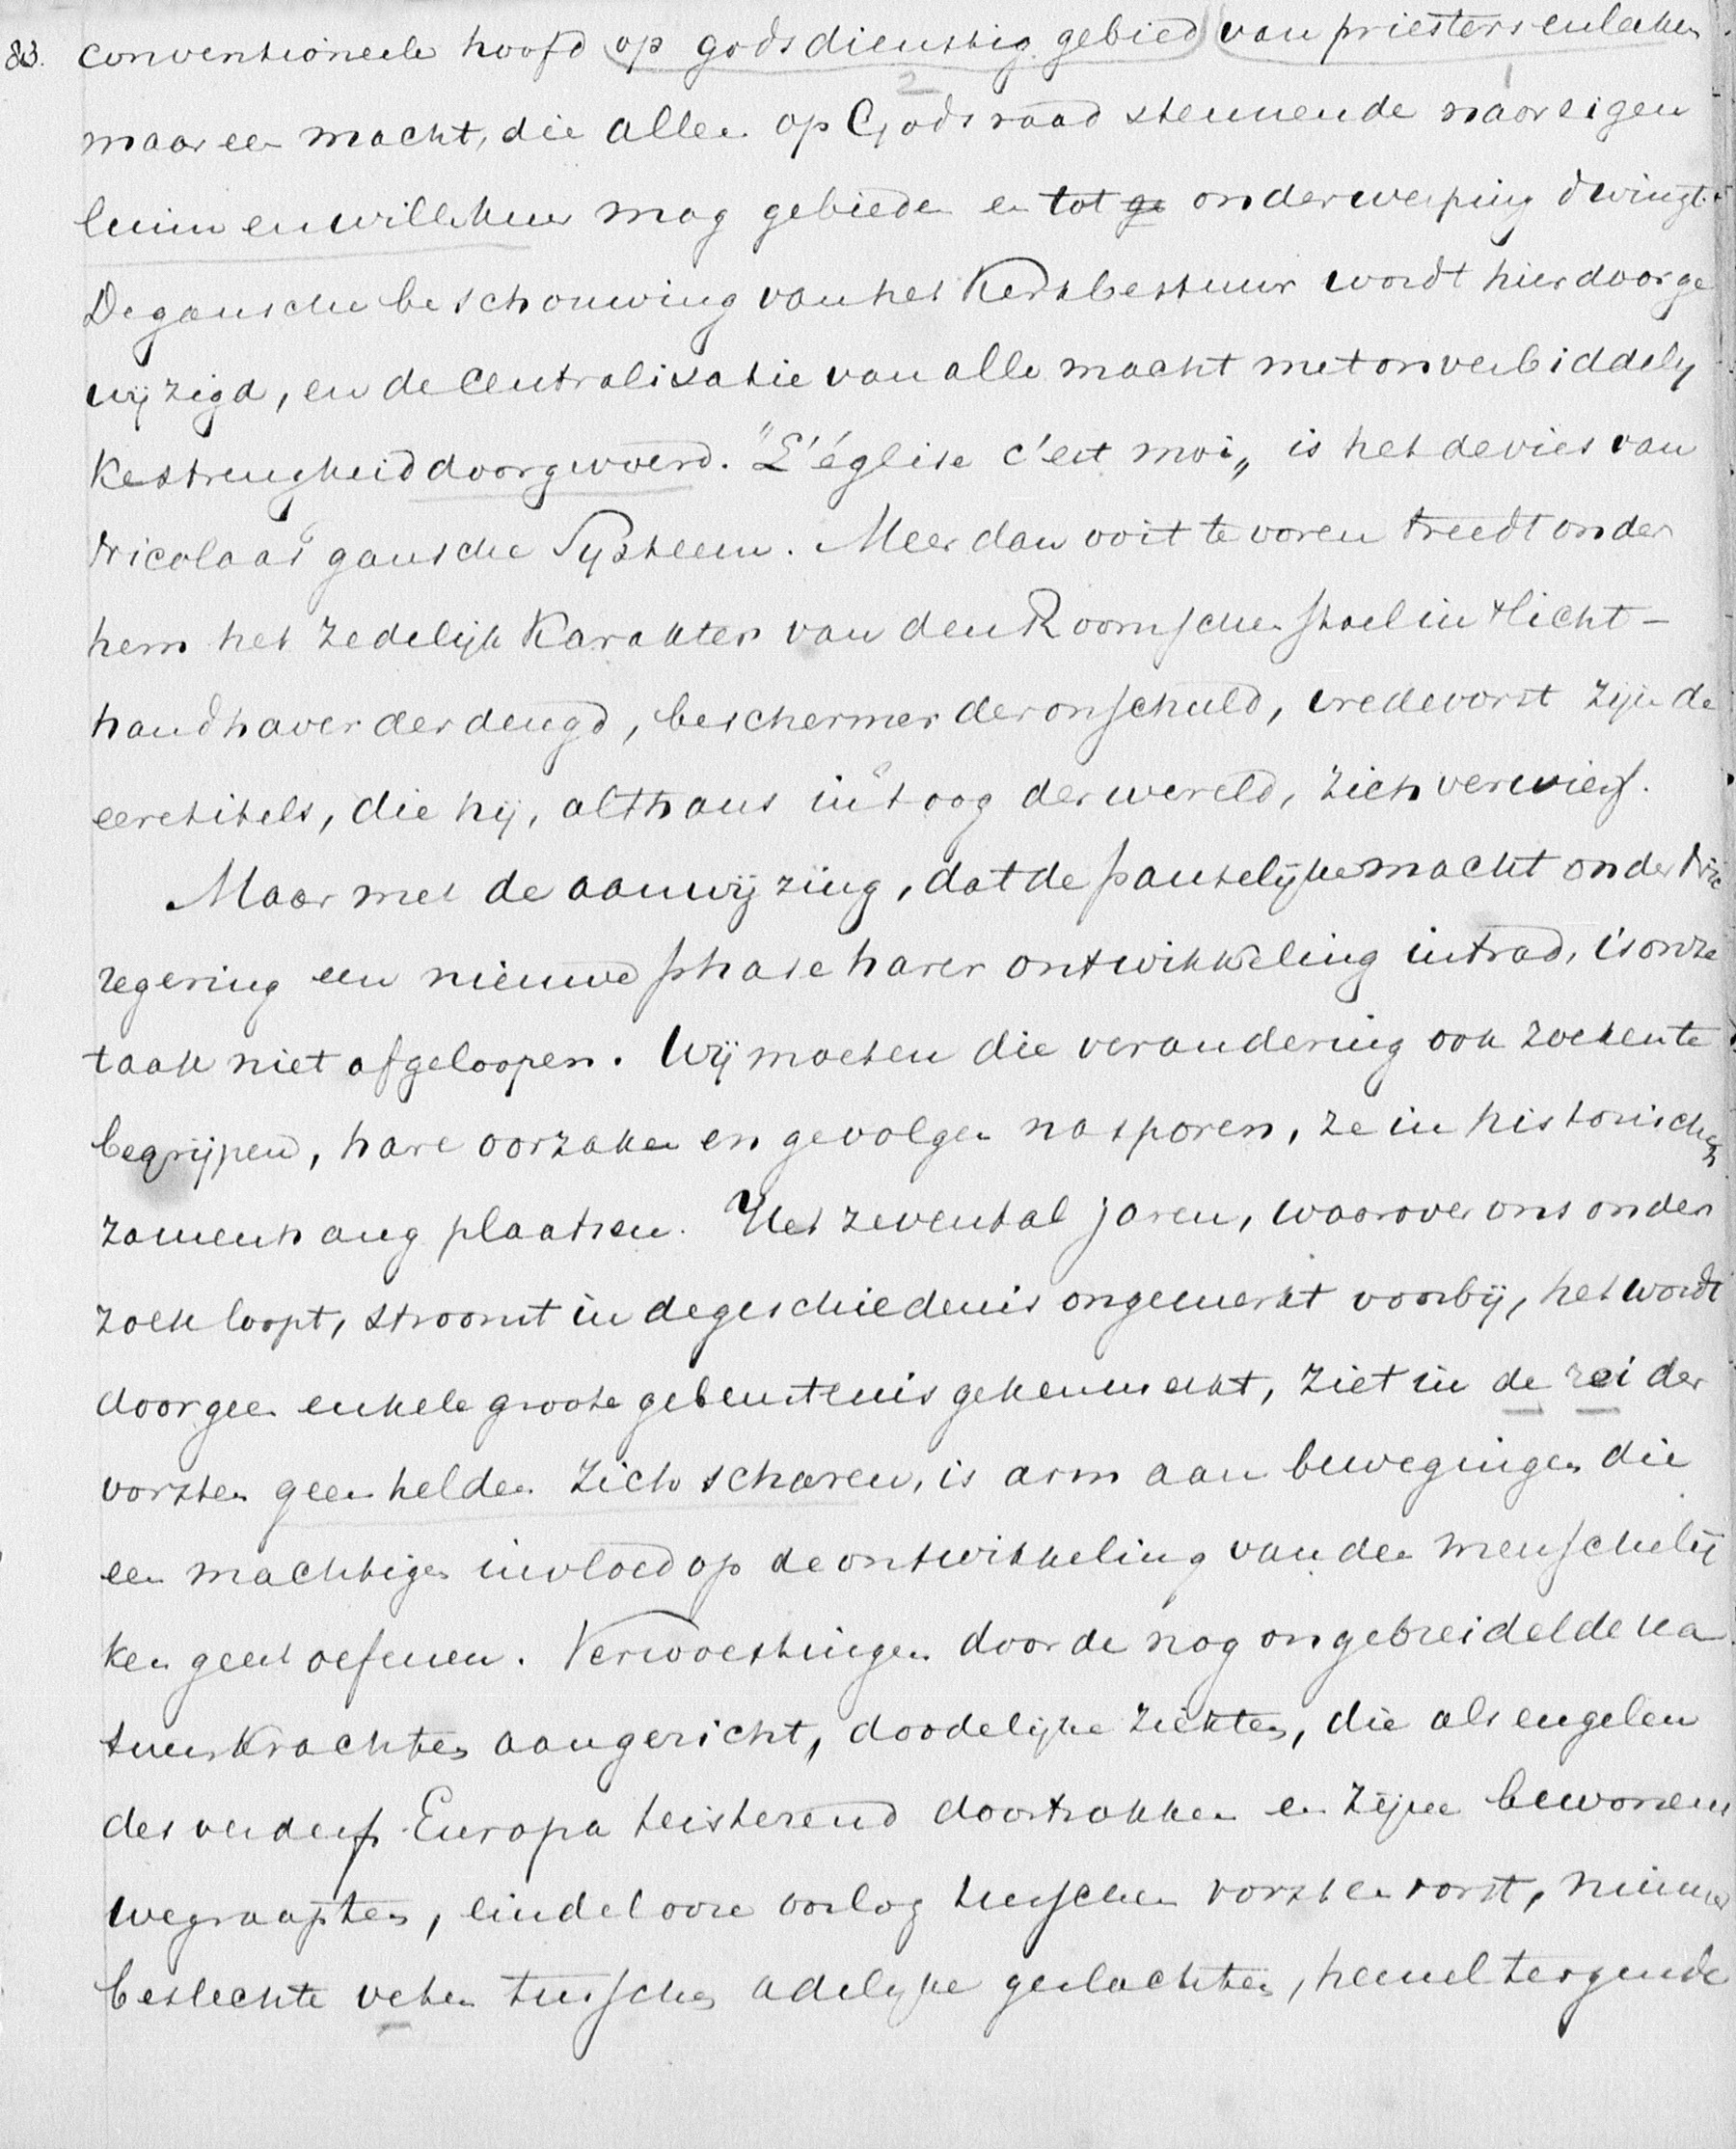 83. conventioneele hoofd (op godsdienstig gebied) (van priesters en leeken
2 1
maar een macht, die alleen op Gods raad steunende naar eigen
luim en willekeur mag gebieden en tot ge onderwerping dwingt.
De gansche beschouwing van het Kerkbestuur wordt hierdoor ge
wijzigd, en de Centralisatie van alle macht met onverbiddely
ke strengheid doorgevoerd. "L'église c'est moi„ is het devies van
Nicolaas' gansche Systeem. Meer dan ooit te voren treedt onder
hem het zedelijk Karakter van den Roomschen stoel in 't licht –
handhaver der deugd, beschermer der onschuld, vredevorst zijn de
eeretitels, die hij, althans in 't oog der wereld, zich verwierf.
Maar met de aanwijzing, dat de pauselijke macht onder Nic
regering een nieuwe phase harer ontwikkeling intrad, is onze
taak niet afgeloopen. Wij moeten die verandering ook zoeken te
begrijpen, hare oorzaken en gevolgen nasporen, ze in historischen
zamenhang plaatsen. Het zevental jaren, waarover ons onder
zoek loopt, stroomt in de geschiedenis ongemerkt voorbij, het wordt
door geen enkele groote gebeurtenis gekenmerkt, ziet in de rei der
vorsten geen helden zich scharen, is arm aan bewegingen die
een machtigen invloed op de ontwikkeling van den menschelij
ken geest oefenen. Verwoestingen door de nog ongebreidelde na
tuurkrachten aangericht, doodelijke ziekten, die als engelen
des verderfs Europa teisterend doortrokken en zijne bewoners
wegraapten, eindeloore oorlog tusschen vorst en vorst, nimmer
beslechte veten tusschen adelijke geslachten, hemeltergende